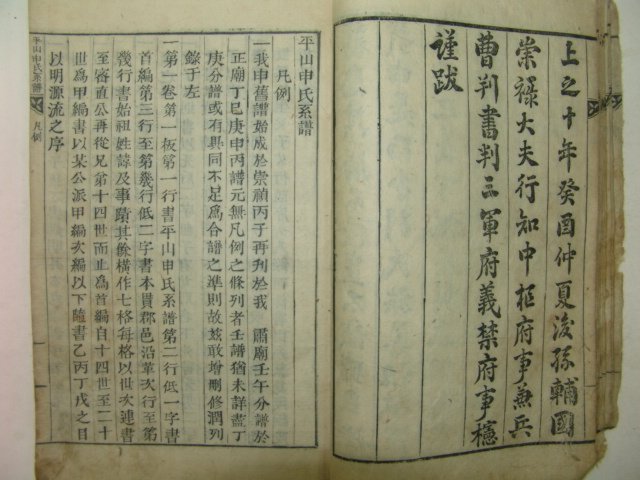 上之十年癸酉仲夏後孫輔國
崇祿大夫行知中樞府事兼兵
曹判書判三軍府義禁府事櫶
謹跋
平山申氏系譜
凡例
一我申舊譜始成於崇禎丙子再刋於我 肅廟壬午分譜於
正廟丁巳庚申丙譜元無凡例之條列者壬譜猶未詳盡丁
庚分譜或有異同不足爲合譜之準則故玆敢增刪修潤列
錄于左
一第一卷第一板第一行書平山申氏系譜第二行低一字書
首編第三行至第幾行低二字書本貫郡邑沿革次行至第
幾行書始祖姓諱及事蹟其餘橫作七格每格以世次連書
至審直公再從兄第十四世而止爲首編自十四世至二十
世爲甲編書以某公派甲編次編以下隨書乙丙丁戊之目
以明源流之序
平山申氏系譜
凡例